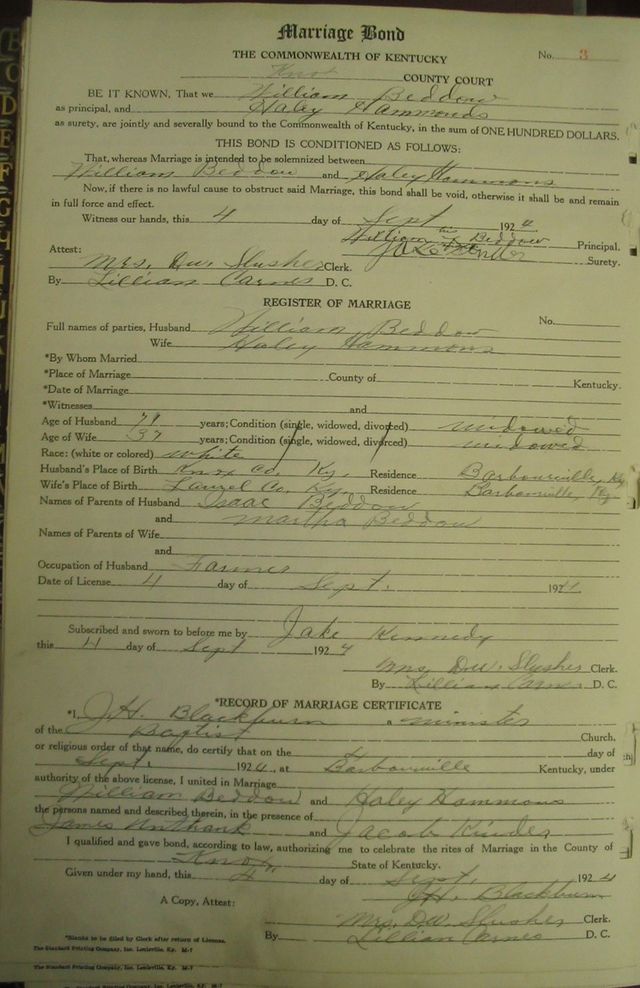 Marriage Bond
THE COMMONWEALTH OF KENTUCKY No. 3
Knox COUNTY COURT
BE IT KNOWN, That we William Beddow
as principal, and Haley Hammonds
as surety, are jointly and severally bound to the Commonwealth of Kentucky, in the sum of ONE HUNDRED DOLLARS.
THIS BOND IS CONDITIONED AS FOLLOWS:
That, whereas Marriage is intended to be solemnized between
William Beddow and Haley Hammons
Now, if there is no lawful cause to obstruct said Marriage, this bond shall be void, otherwise it shall be and remain
in full force and effect.
Witness our hands, this 4 day of Sept 1924
William his Beddow Principal.
Attest: Surety.
Mrs. D.W. Slusher Clerk.
By Lillian Carnes D. C.
REGISTER OF MARRIAGE
Full names of parties, Husband William Beddow No.
Wife Haley Hammons
*By Whom Married
*Place of Marriage County of Kentucky.
*Date of Marriage
*Witnesses and
Age of Husband 79 years; Condition (single, widowed, divorced) widowed
Age of Wife 37 years; Condition (single, widowed, divorced) widowed
Race: (white or colored) white
Husband's Place of Birth Knox Co, Ky. Residence Barbourville, Ky
Wife's Place of Birth Laurel Co, Ky. Residence Barbourville, Ky
Names of Parents of Husband Isaac Beddow
and Martha Beddow
Names of Parents of Wife
and
Occupation of Husband Farmer
Date of License 4 day of Sept. 1924
Subscribed and sworn to before me by Jake Kennedy
this 4 day of Sept 1924
Mrs. D.W. Slusher Clerk.
By Lillian Carnes D. C.
*RECORD OF MARRIAGE CERTIFICATE
*I, J.H. Blackburn a minister
of the Baptist Church.
or religious order of that name, do certify that on the 4 day of
Sept. 1924, at Barbourville Kentucky, under
authority of the above license, I united in Marriage
William Beddow and Haley Hammons
the persons named and described therein, in the presence of
James Unthank and Jacob Kinder
I qualified and gave bond, according to law, authorizing me to celebrate the rites of Marriage in the County of
Knox State of Kentucky.
Given under my hand, this 4 day of Sept. 1924
J.H. Blackburn
A Copy, Attest:
Mrs. D.W. Slusher Clerk.
By Lillian Carnes D. C.
*Blanks to be filed by Clerk after return of License.
The Standard Printing Company, Inc. Louisville, Ky. M-7
The Standard Printing Company, Inc. Louisville, Ky. M-7